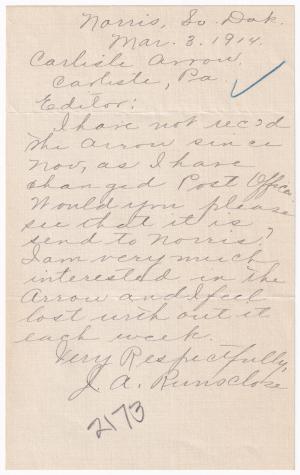 Norris, So. Dak.
Mar. 3. 1914.
Carlisle Arrow,
Carlisle, Pa.
Editor:
I have not rec'd
the Arrow since
Nov, as I have
changed Post Office.
Would you please
see that it is
send to Norris?
I am very much
interested in the
Arrow and I feel
lost with out it
each week.
Very Respectfully,
J. A. Runsclose
2173